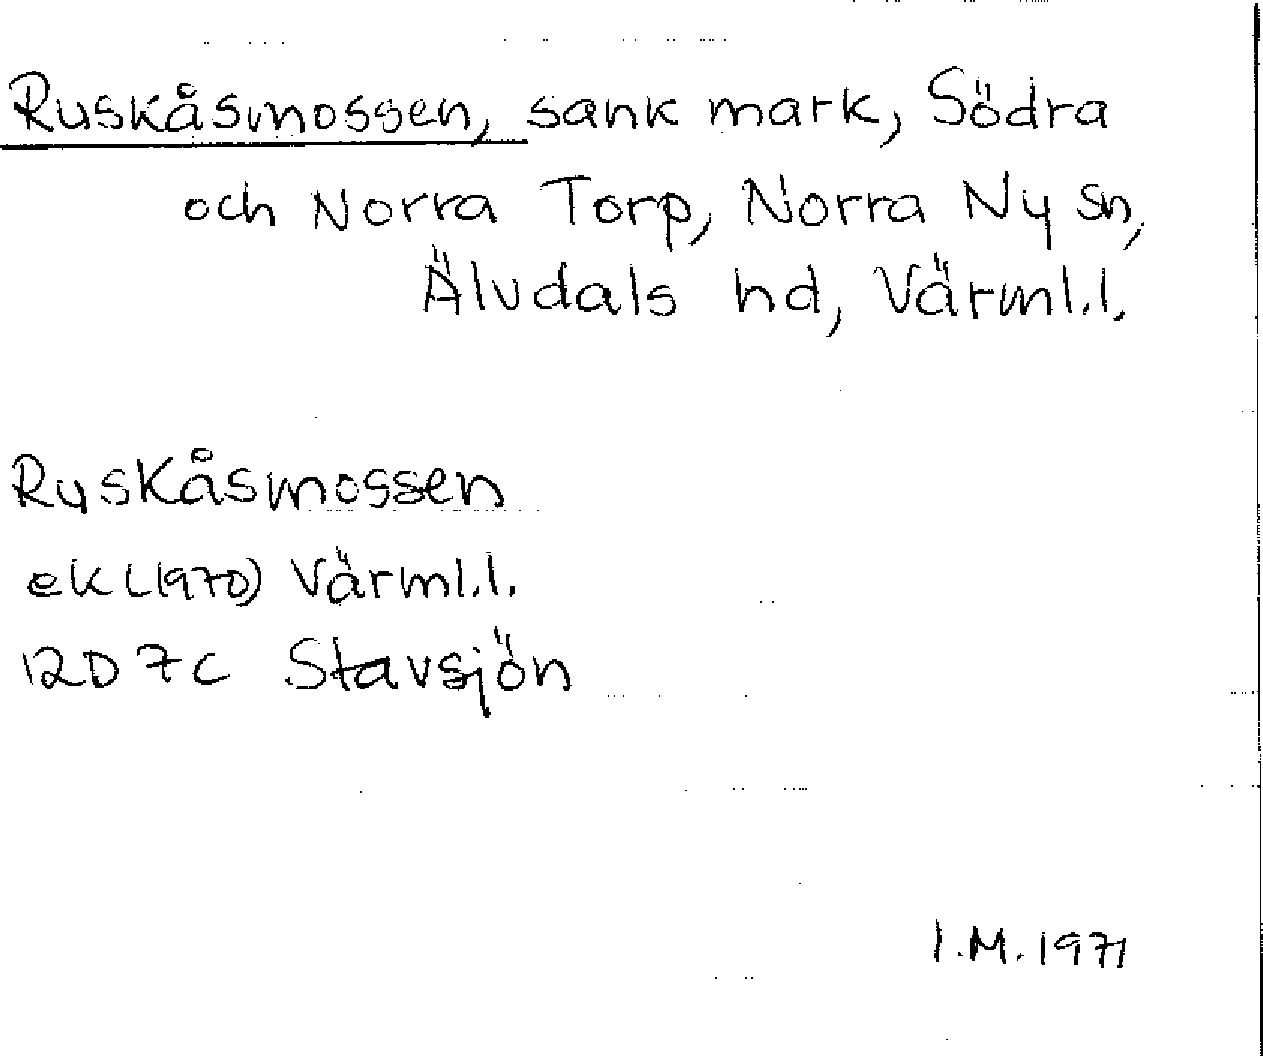 Ruskåsmossen, sank mark, Södra
och Norra Torp, Norra Ny sn,
Älvdals hd, Värml.l.
Ruskåsmossen
ek (1970) Värml.l.
12D 7c Stavsjön
I.M. 1971